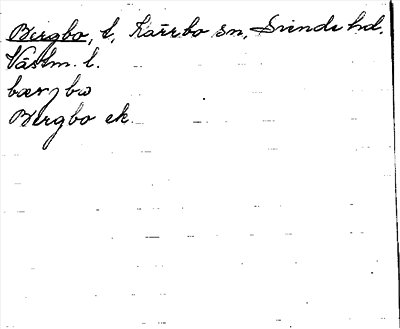 Bergbo, t, Kärrbo sn, Siende hd.
Västm. l.
bærjbω
Bergbo ek.